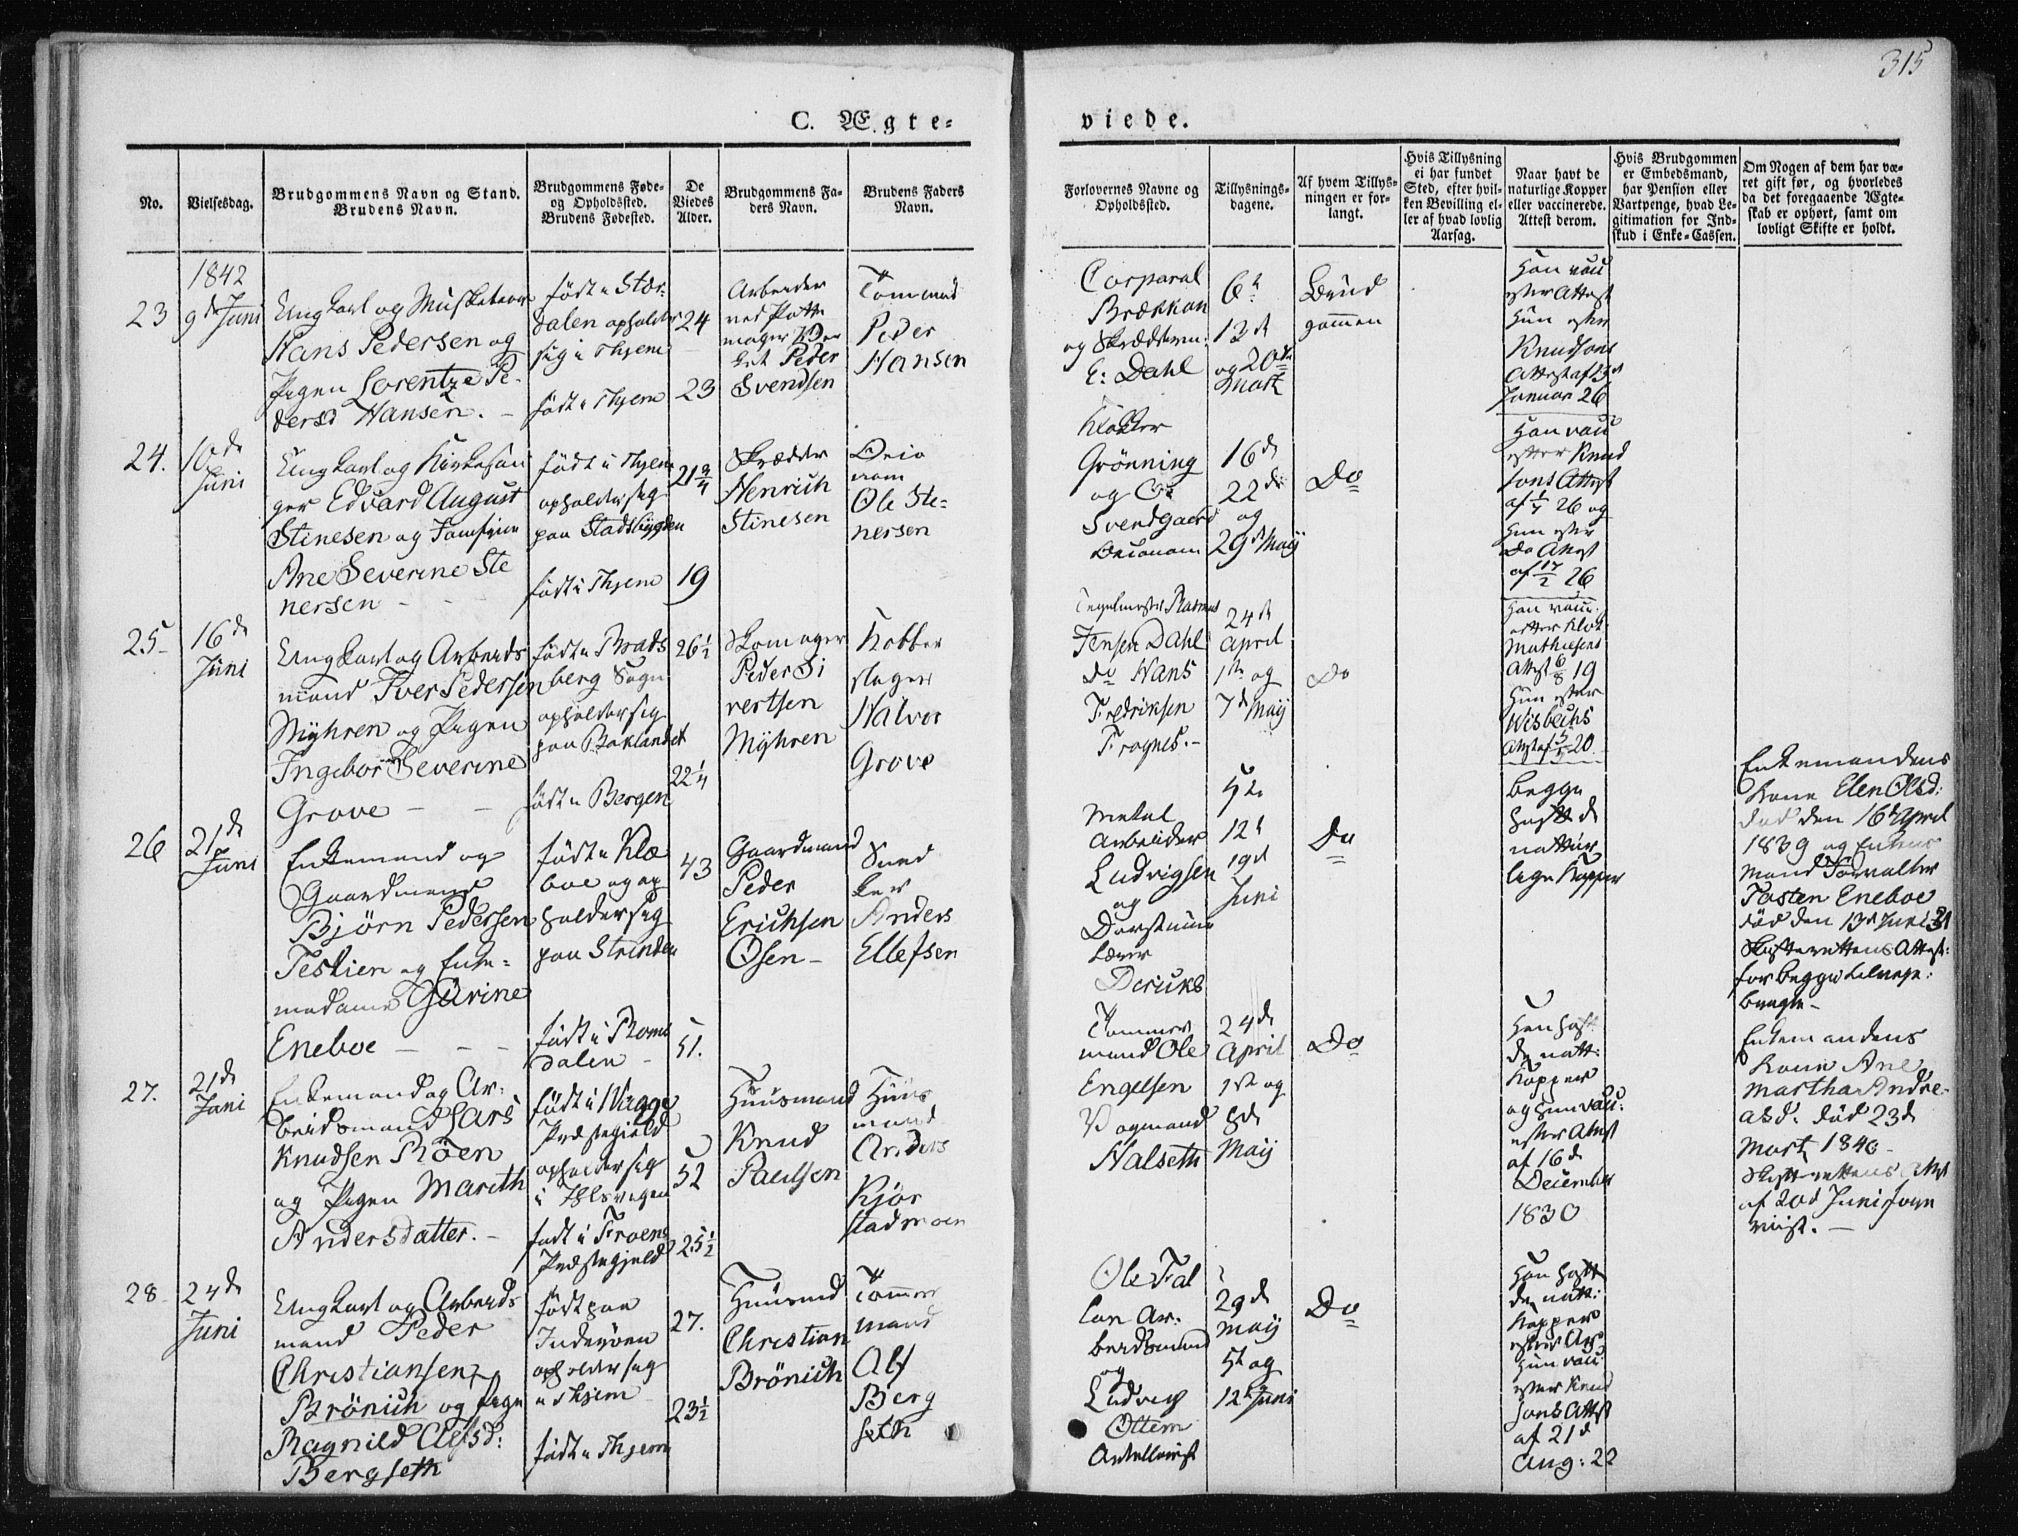 315
C. Ægte-
viede.
No.
Vielsesdag.
Brudgommens Navn og Stand.
Brudens Navn.
Brudgommens Føde-
og Opholdssted.
Brudens Fødested.
De
Viedes
Alder.
Brudgommens Fa-
ders Navn.
Brudens Faders
Navn.
Forlovernes Navne og
Opholdssted.
Tillysnings-
dagene.
Af hvem Tillys-
ningen er for-
langt.
Hvis Tillysning
ei har fundet
Sted, efter hvil-
ken Bevilling el-
ler af hvad lovlig
Aarsag.
Naar havt de
naturlige Kopper
eller vaccinerede.
Attest derom.
Hvis Brudgommen
er Embedsmand,
har Pension eller
Vartpenge, hvad Le-
gitimation for Ind-
skud i Enke-Cassen.
Om Nogen af dem har væ-
ret gift før, og hvorledes
da det foregaaende Ægte-
skab er ophørt, samt om
lovligt Skifte er holdt.
1842
23
9d Juni
Ungkarl og Musketeer
Hans Pedersen og
Pigen Lorentze Pe-
dersd Hansen.
født i Stør-
dalen opholder
sig i Thjem
født i Thjem
24
23
Arbeider
ved Potte
mager
Peder
Svendsen
Tømmermd
Peder
Hansen
Corporal
Brækkan
og Skrædderm:
E: Dahl
6te
13d
og 20de
Marts
Brud
gommen
Han vacc
efter Attest
Hun efter
Knudsons
Attest af
Januar 26
24.
10de
Juni
Ungkarl og Kirkesan
ger Edvard August
Stinesen og Jomfrue
Ane Severine Ste
nersen
født i Thjem
opholder sig
paa Stadsbygden
født i Thjem
21 3/4
19
Skrædder
Henrich
Stinesen
Oeco
nom
Ole Ste-
nersen
Klokker
Grønning
og
Svendgaard
Oeconom
16d
22de
og
29d Maij
Do
Han vacc
efter Knud
sons Attest
af 1/4 26 og
Hun efter
Do Attest
af 17/2 26
25
16de
Juni
Ungkarl og Arbeids
mand Iver Pedersen
Myhren og Pigen
Ingebor Severine
Grove
født i Brads
berg Sogn
opholder sig
paa Baklandet
født i Bergen
26 1/2
22 1/4
Skomager
Peder Si
vertsen
Myhren
Kobber
slager
Halvor
Grove
Tegelmester Rasmus
Jensen Dahl
do Hans
Fredriksen
Frognes.
24de
April
1ste og
7d Maij
Do
Han vacc.
efter Klok
Mathiesens
Attest 6/8 19
Hun efter
Wisbechs
20
26
21de
Juni
Enkemand og
Gaardmand
Bjørn Pedersen
Teslien og Enke-
madame Gurine
Eneboe
født i Klæ
boe og op
holder sig
paa Strinden
født i Roms
dalen
43
51.
Gaardmand
Peder
Erichsen
Osen
Sned
ker
Anders
Ellefsen
Metal
Arbeider
Ludvigsen
og
Lærer
Dericks
5te
12te
19d
Juni
Do
Begge
havt de
natur
lige Kopper
Enkemandens
Kone Elen Olsd:
død den 16de April
1839 og Enkens
Mand Forvalter
Tosten Eneboe
død den 13d Juni 31
Skifterettens Attest:
for begge tilveie:
bragte
27.
21de
Juni
Enkemand og Ar-
beidsmand Lars
Knudsen Røen
og Pigen Marith
Andersdatter.
født i Wage
Præstegjeld
opholder sig
i Ihlsvigen
født i Froens
Præstegjeld
52
25 1/2
Huusmand
Knud
Paulsen
Huus
mand
Anders
Kjør
stadmoen
Tømmer
mand Ole
Engelsen
Vognmand
Halseth
24de
April
1ste og
8de
Maij
Do
Han haft
de natt:
Kopper
og Hun vacc:
efter Attest
af 16de
December
1830
Enkemandens
Kone Ane
Martha Andre-
asd. død 23de
Mart 1840
Skifterettens Attest
af 20d Juni fore
viist.
28
24de
Juni
Ungkarl og Arbeids
mand Peder
Christiansen
Brönich og Pigen
Ragnild Olefsd:
Bergseth
født paa
Inderøen
opholder sig
i Thjem
født i Thjem
27.
23 1/2
Huusmd
Christian
Brönich
Tømmer
mand
Olef
Berg
seth
Ole Fal
Ar-
beidsmand
og
Ludvig
Ottem
29de
Maij
5te og
12te Juni
Do
Han haft
de natt:
Kopper
efter
Hun vacc
efter Knud
sons Attest
af 21d
Aug: 22